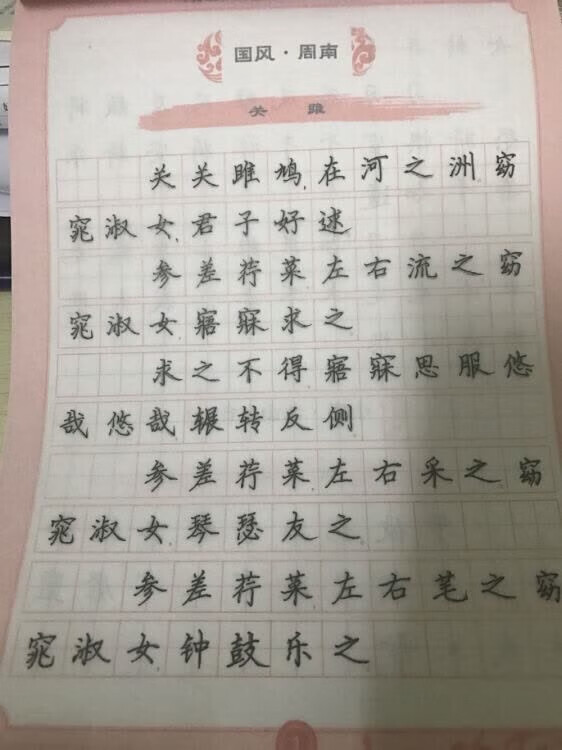 国风·周南
关雎
关关雎鸠在河之洲窈
窕淑女君子好逑
参差荇菜左右流之窈
窕淑女寤寐求之
求之不得寤寐思服悠
哉悠哉辗转反侧
参差荇菜左右采之窈
窕淑女琴瑟友之
参差荇菜左右芼之窈
窕淑女钟鼓乐之